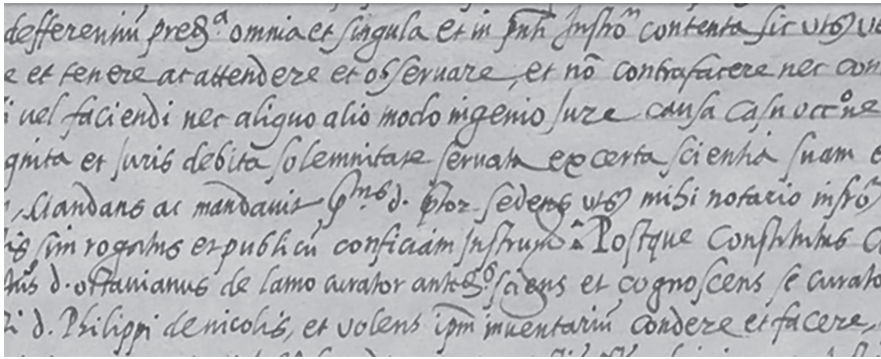 defferentiū pred.ᵃ omnia et singula et in pn̄ti Instrō contenta sic utS
e et tenere ac attendere et observare, et nō contrafacere nec con
i vel faciendi nec aliquo alio modo ingenio Jure causa casu occ.ne
gnita et Juris debita solemnitate servata ex certa scientia suam
Mandans ac mandavit d. sedens utS mihi notario
is sim rogatus et publicū conficiam Instrum Postque Constitutus
d. ottavianus de lamo curator ante sciens et cognoscens se curato
d. Philippi de nicolis, et volens ipm̄ inventariū condere et facere,